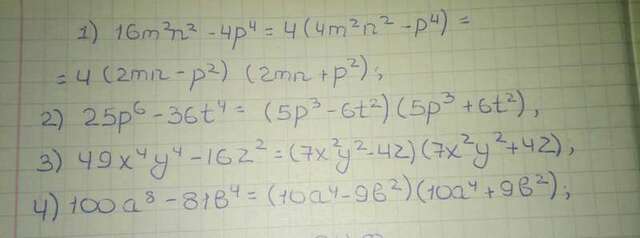 1) 16m²n² - 4p⁴ = 4 (4m²n² - p⁴) =
= 4 (2mn - p²) (2mn + p²);
2) 25p⁶ - 36t⁴ = (5p³ - 6t²) (5p³ + 6t²),
3) 49x⁴y⁴ - 16z² = (7x²y² - 4z) (7x²y² + 4z),
4) 100a⁸ - 81b⁴ = (10a⁴ - 9b²) (10a⁴ + 9b²);